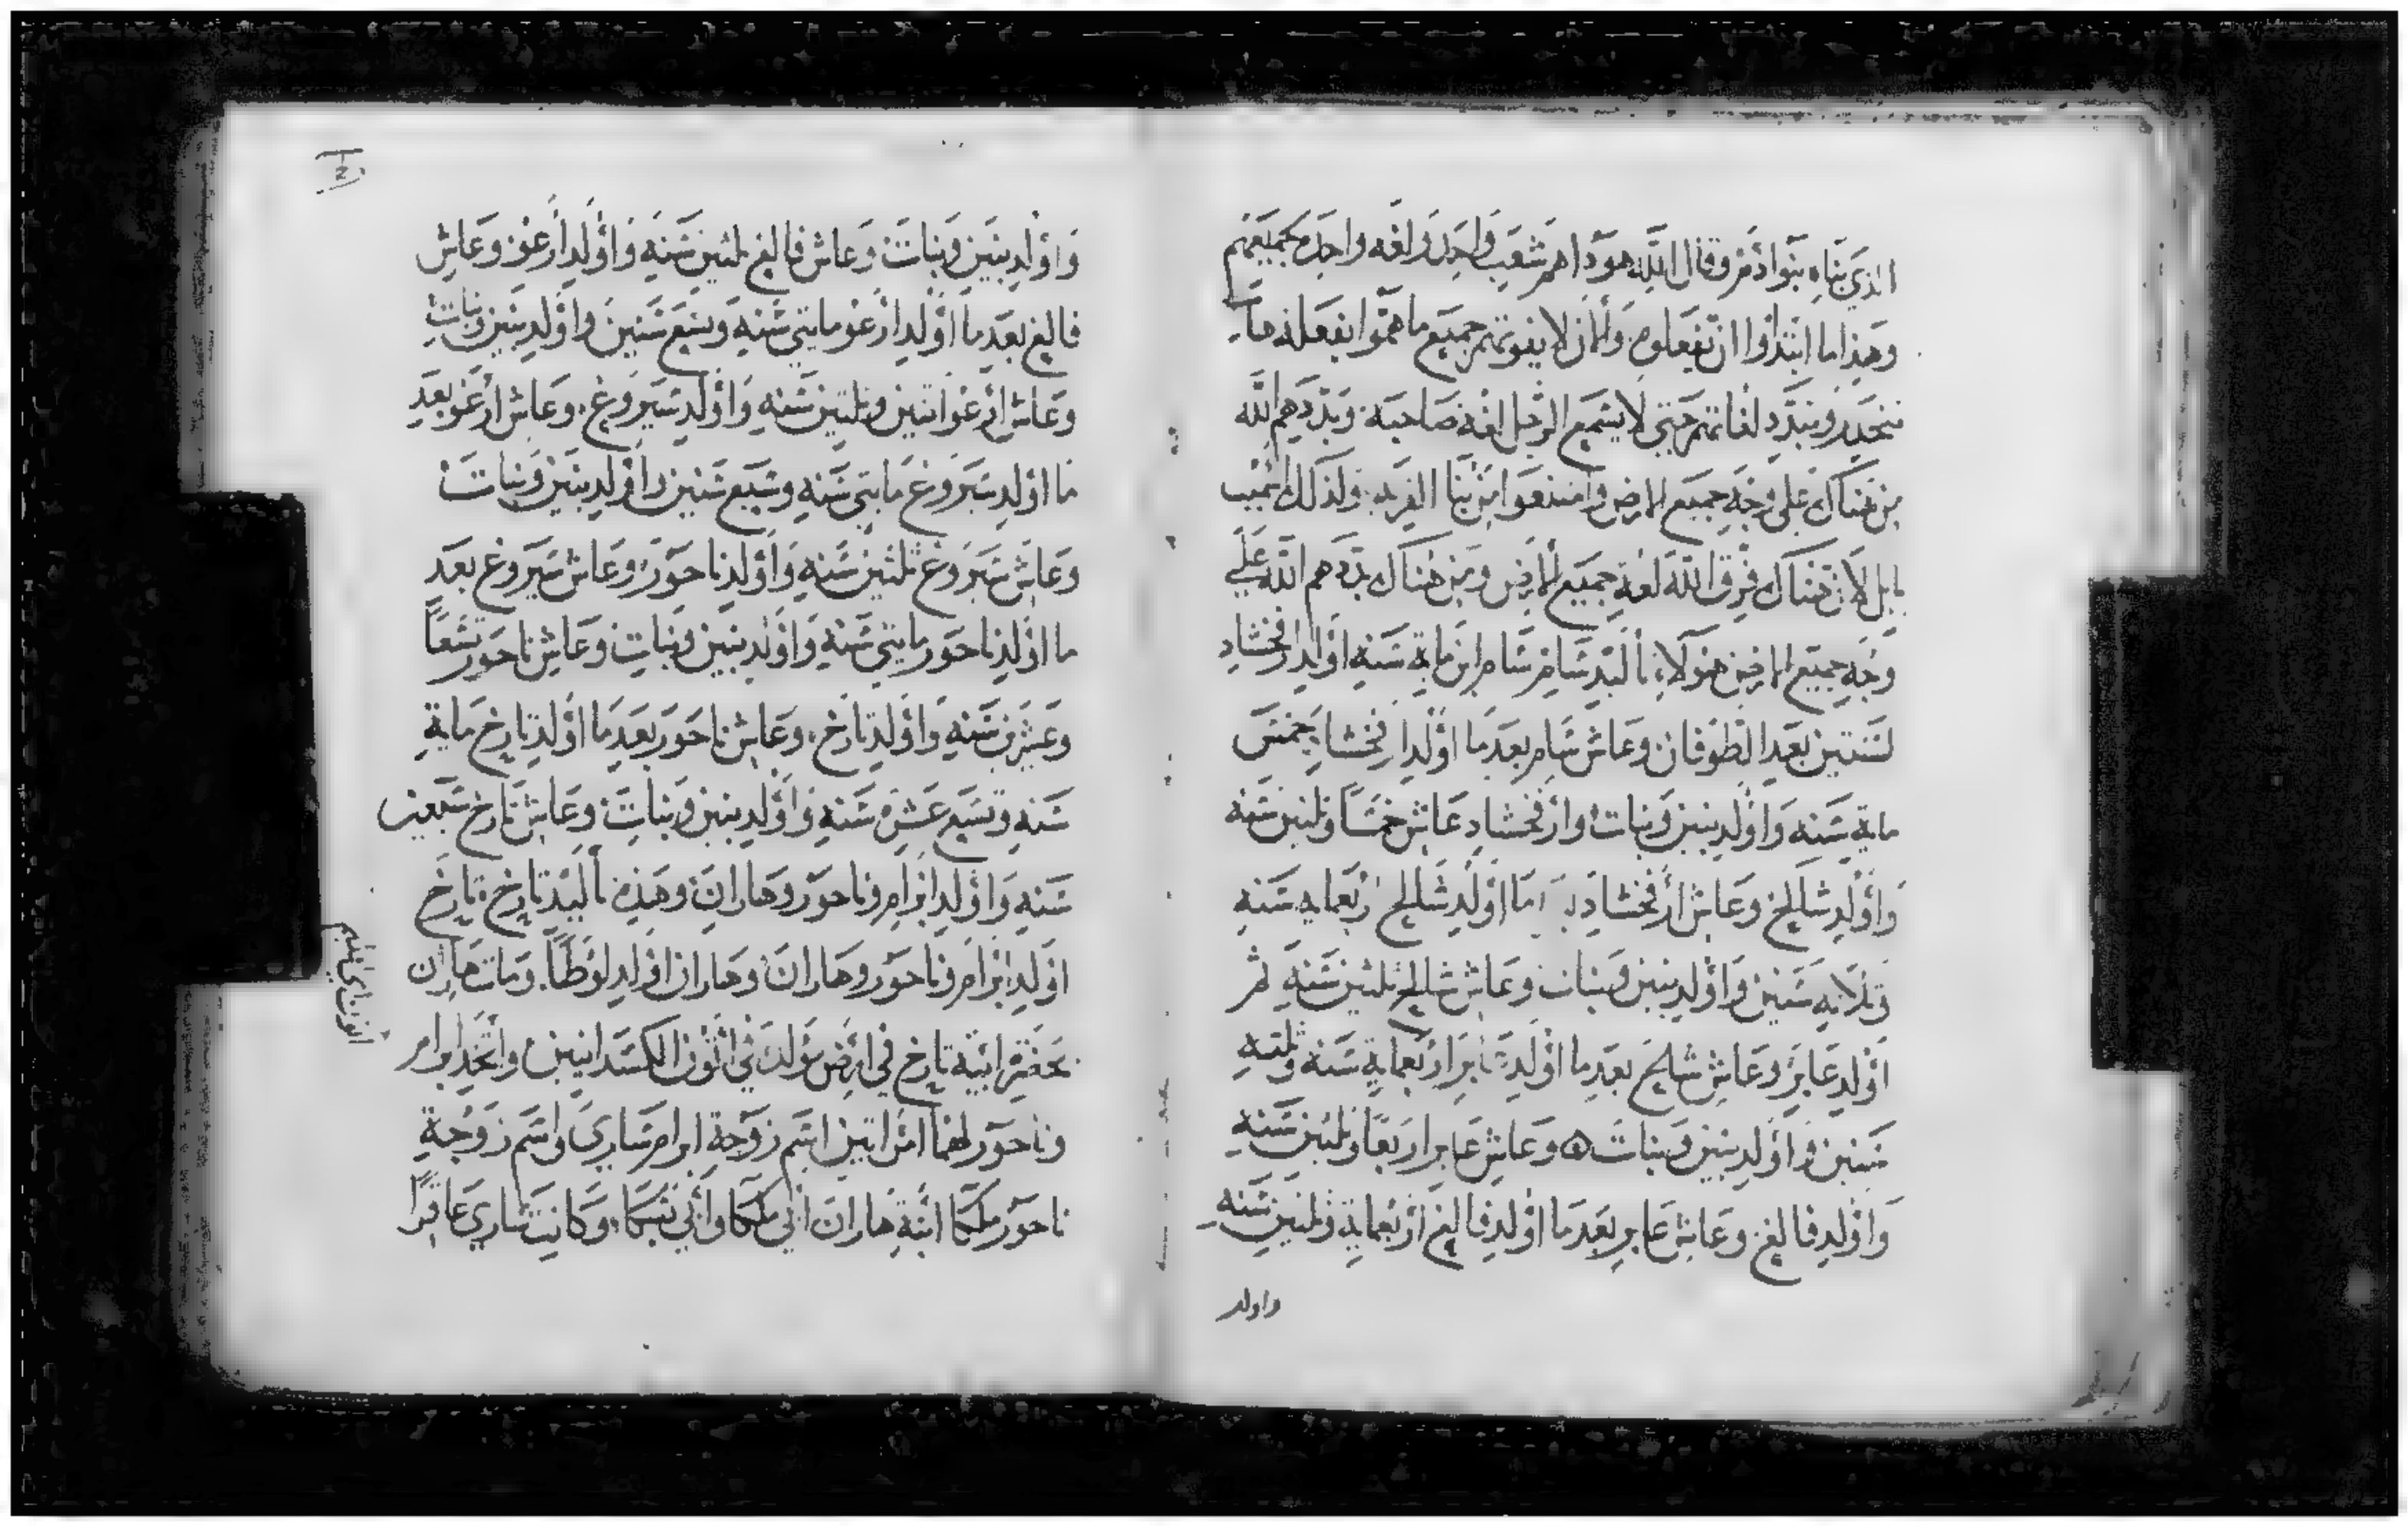 الذي بناه بنوا ادم وقال الله هودا هم شعب واحد ولغه واحده لجميعهم
وهذا ما ابتدوا ان تفعلوه والان لا يفوتهم جميع ما هموا بفعله هات
ننحدر ونبدد لغاتهم حتي لا يسمع الرجل لغة صاحبه وبددهم الله
من هناك علي وجه جميع الارض وامتنعوا من بنا القريه ولذلك اسميت
بابل لان هناك فرق الله لغة جميع الارض ومن هناك بددهم الله علي
وجه جميع الارض هولاء تاليد سام سام ابن ماية سنه اولد ارفخشاد
لسنتين بعد الطوفان وعاش سام بعدما اولد ارفخشاد خمس
ماية سنه واولد بنين وبنات وارفخشاد عاش خمسا وثلثين سنه
واولد شالخ وعاش ارفخشاد ما اولد شالخ اربعمايه سنه
وثلاثه سنين واولد بنين وبنات وعاش شالخ ثلثين سنه ثم
اولد عابر وعاش شالخ بعدما اولد عابر اربعماية سنه وثلثه
سنين واولد بنين وبنات وعاش عابر اربعا وثلثين سنه
واولد فالغ وعاش عابر بعدما اولد فالغ اربعماية وثلثين سنه
واولد
واولد بنين وبنات وعاش فالغ ثلثين سنه واولد ارعو وعاش
فالغ بعد ما اولد ارعو مايتي سنه وتسع سنين واولد بنين وبنات
وعاش ارعو اثنين وثلثين سنه واولد سيروغ وعاش ارعو بعد
ما اولد سيروغ مايتي سنه وسبع سنين واولد بنين وبنات
وعاش سيروغ ثلثين سنه واولد ناحور وعاش سيروغ بعد
ما اولد ناحور مايتي سنه واولد بنين وبنات وعاش ناحور تسعا
وعشرين سنه واولد تارخ وعاش ناحور بعدما اولد تارخ ماية
سنه وتسع عشره سنه واولد بنين وبنات وعاش تارخ سبعين
سنه واولد ابرام وناحور وهاران وهذه تاليد تارخ تارخ
اولد ابرام وناحور وهاران وهاران اولد لوطا ومات هاران
بحضرة ابيه تارخ في ارض مولده في اثون الكسدانيين واتخذ ابرام
وناحور لهما امراتين اسم زوجة ابرام ساري واسم زوجة
ناحور ملكا ابنة هاران ابي ملكا وابي يسكا وكانت ساري عاقرا